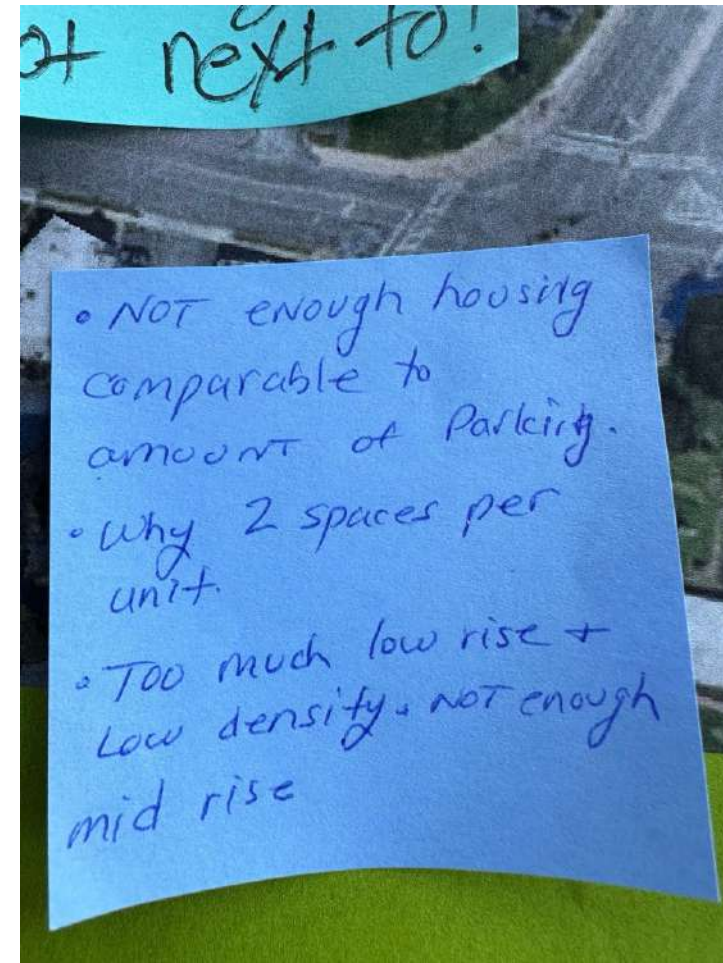 ot next to!
• NOT enough housing
comparable to
amount of Parking.
• Why 2 spaces per
unit.
• Too much low rise +
Low density. NOT enough
mid rise